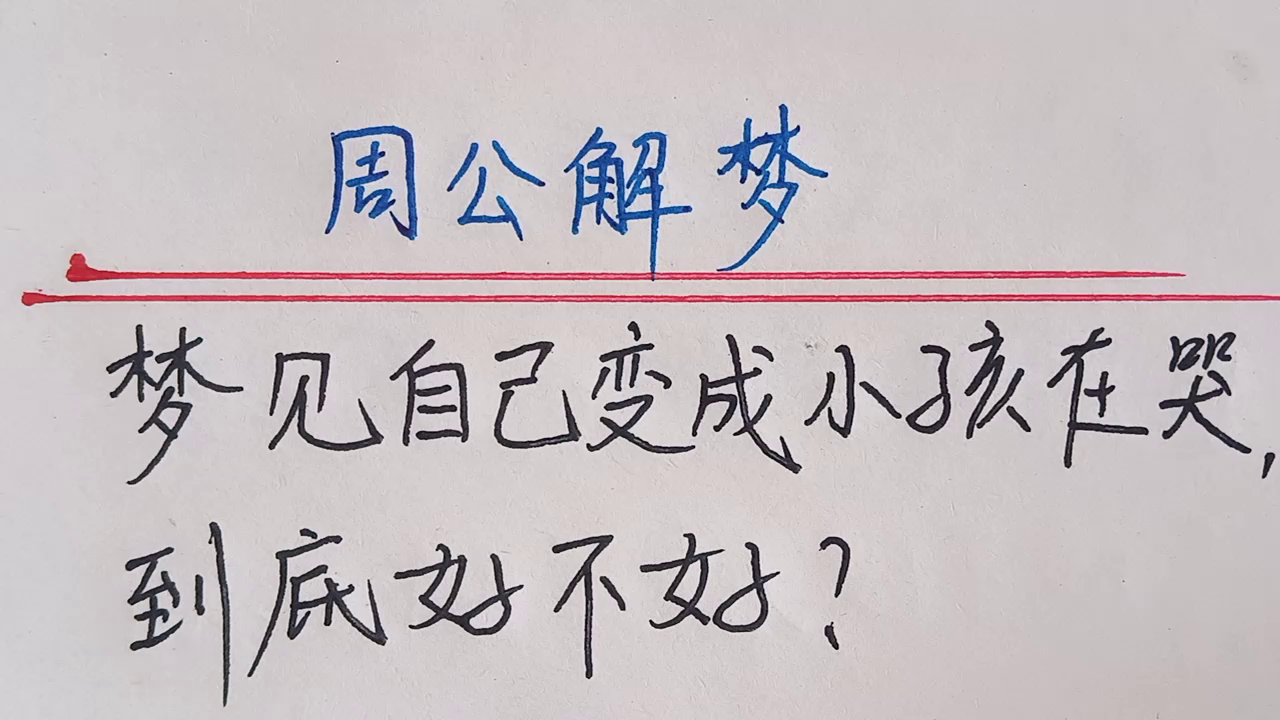 周公解梦
梦见自己变成小孩在哭,
到底好不好?